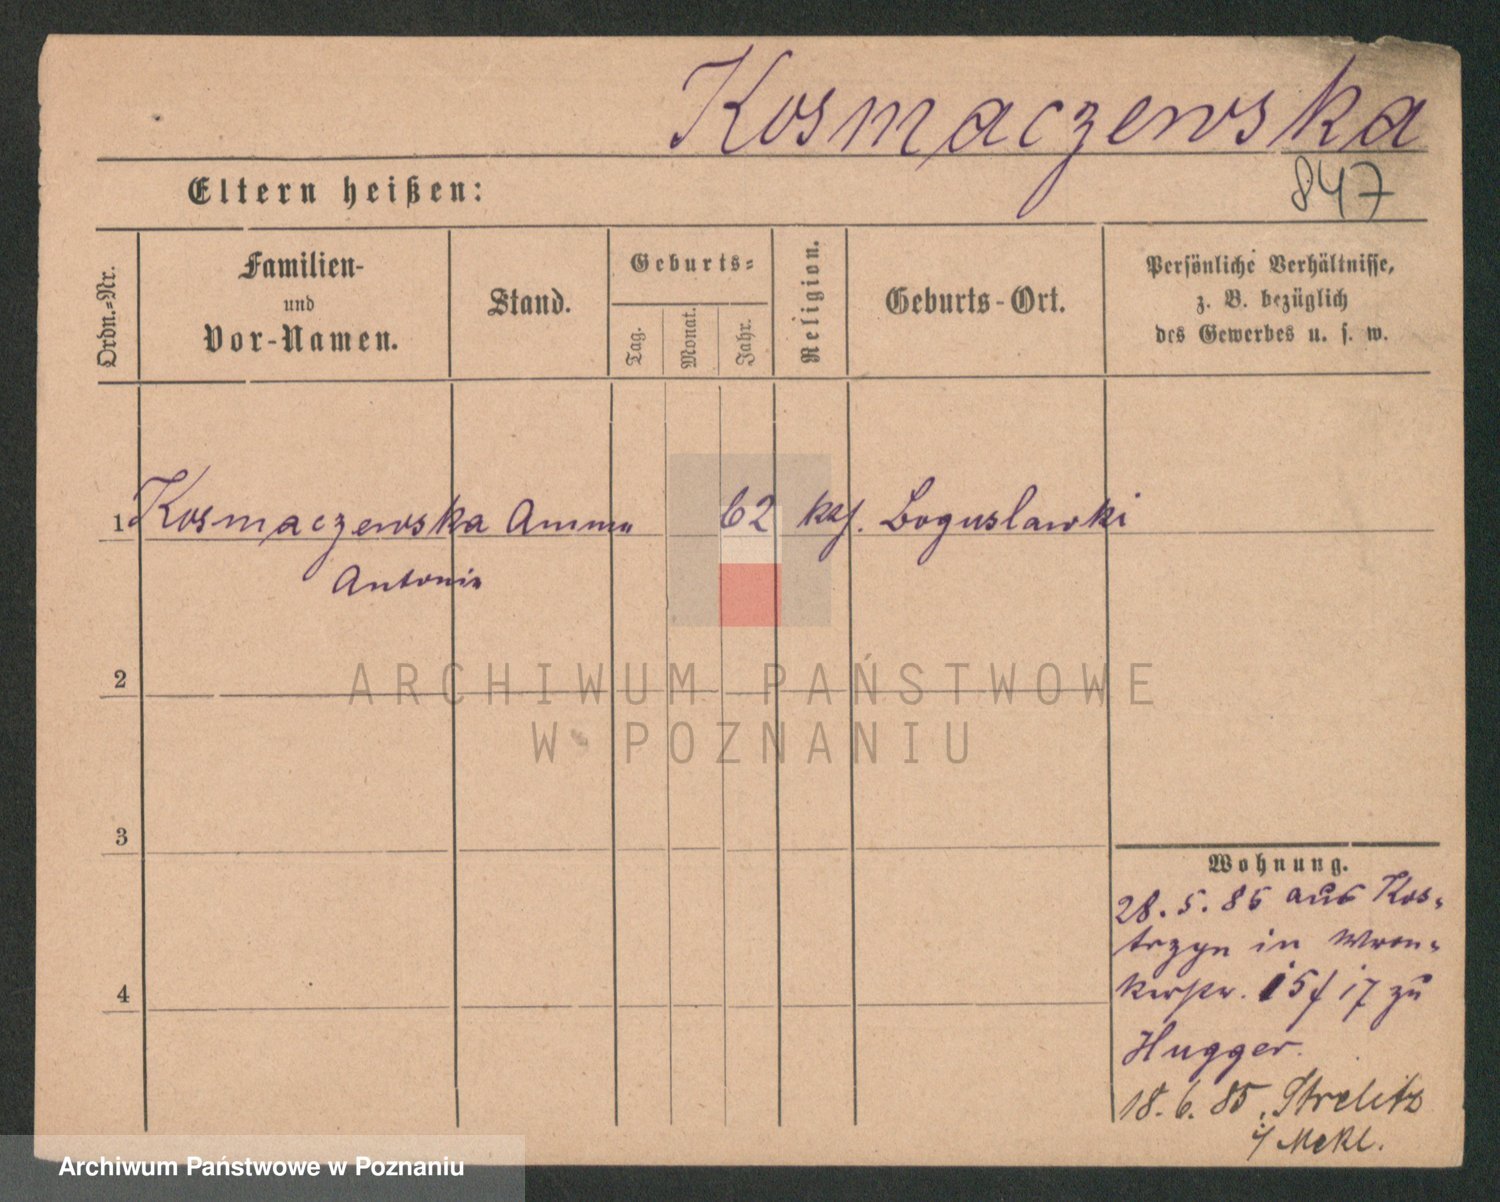 Kosmaczewska
847
Eltern heißen:
Ordn.-Nr.
Familien-
und
Vor-Namen.
Stand.
Geburts-
Tag.
Monat.
Jahr.
Religion.
Geburts-Ort.
Persönliche Verhältnisse,
z. B. bezüglich
des Gewerbes u. s. w.
1 Kosmaczewska Anna 62 kaf. Boguslawki
Antonia
2
ARCHIWUM PAŃSTWOWE
W POZNANIU
3
4
Wohnung.
28. 5. 85 aus Kos-
trzyn in Wron-
kerstr. 15/17 zu
Hugger.
18. 6. 85. Strelitz
i/ Mekl.
Archiwum Państwowe w Poznaniu